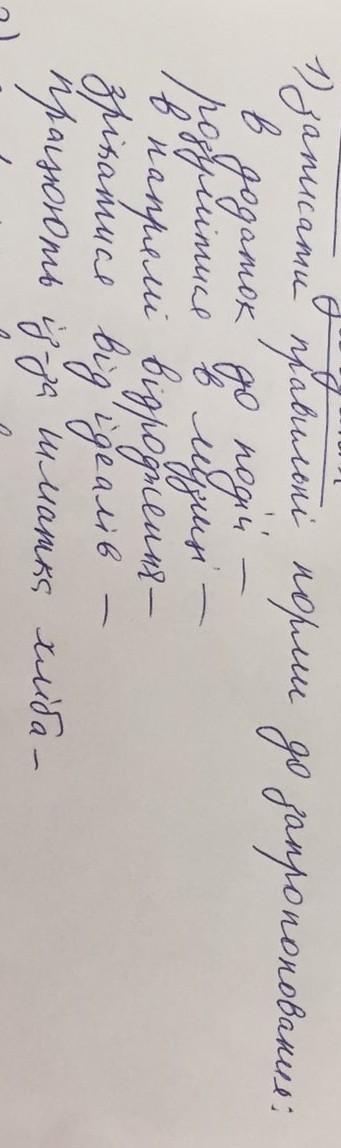 1) Записати правильні норми до запропонованих:
в додаток до подій —
розумітися в музиці —
в напрямі відродження —
зрікатися від ідеалів —
працюють із-за шматка хліба —
2)